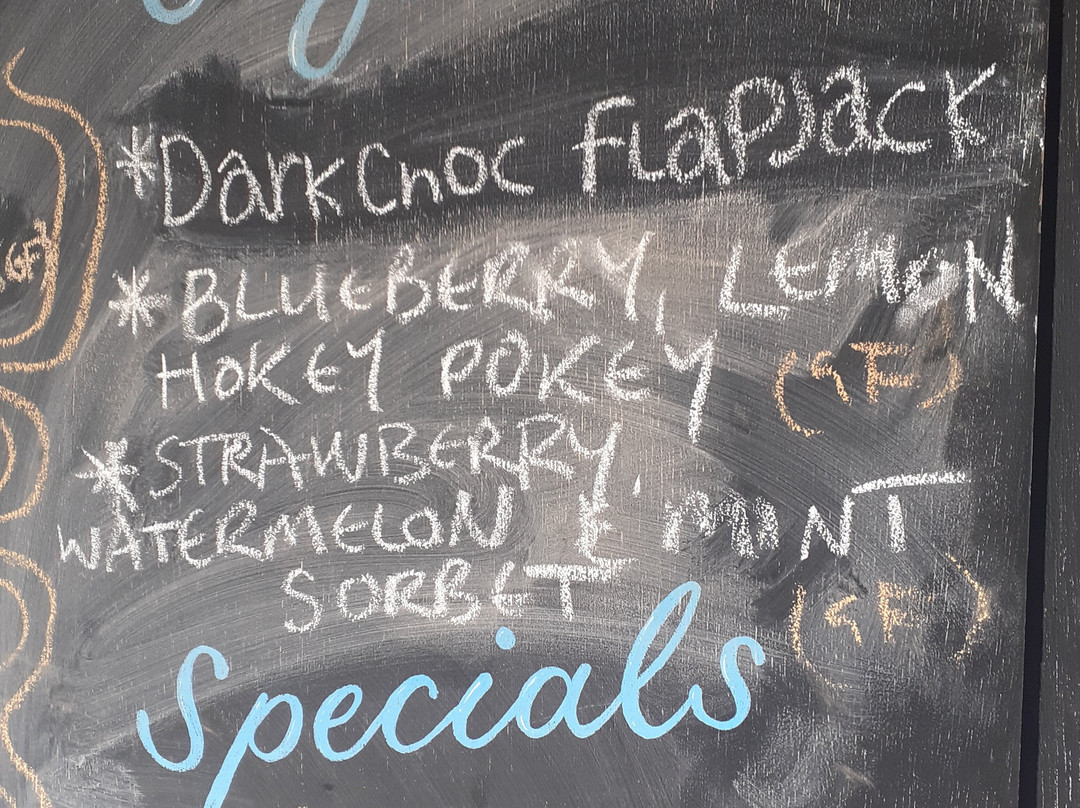 *Dark Choc FLapJack
(GF)
*BLUEBERRY, LEMON
HOKEY POKEY (GF)
*STRAWBERRY,
WATERMELON & MINT
SORBET (GF)
Specials